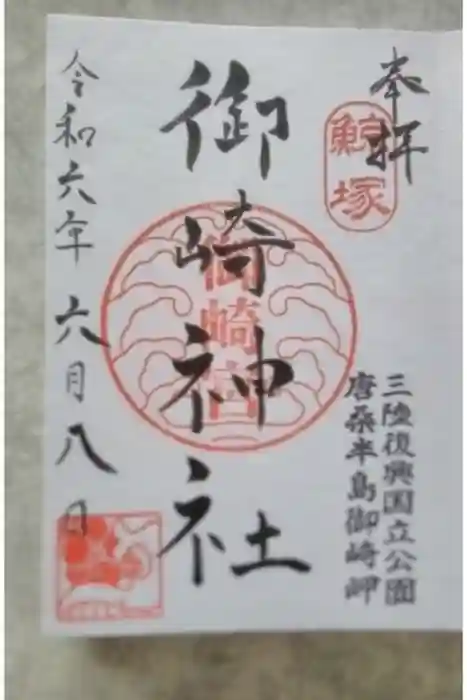 奉拝
鯨塚
三陸復興国立公園
唐桑半島御崎岬
御崎神社
御崎宮
令和六年六月八日